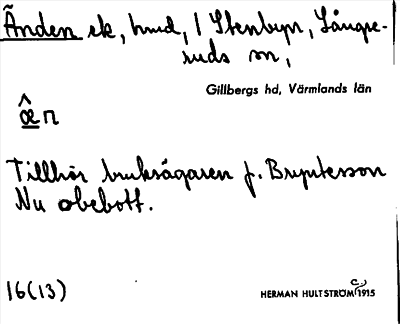 Änden ek, hmd, I Stenbyn, Långse-
ruds sn,
Gillbergs hd, Värmlands län
æ̂n
Tillhör bruksägaren f. Bryntesson
Nu obebott.
16(13)
HERMAN HULTSTRÖM c. 1915